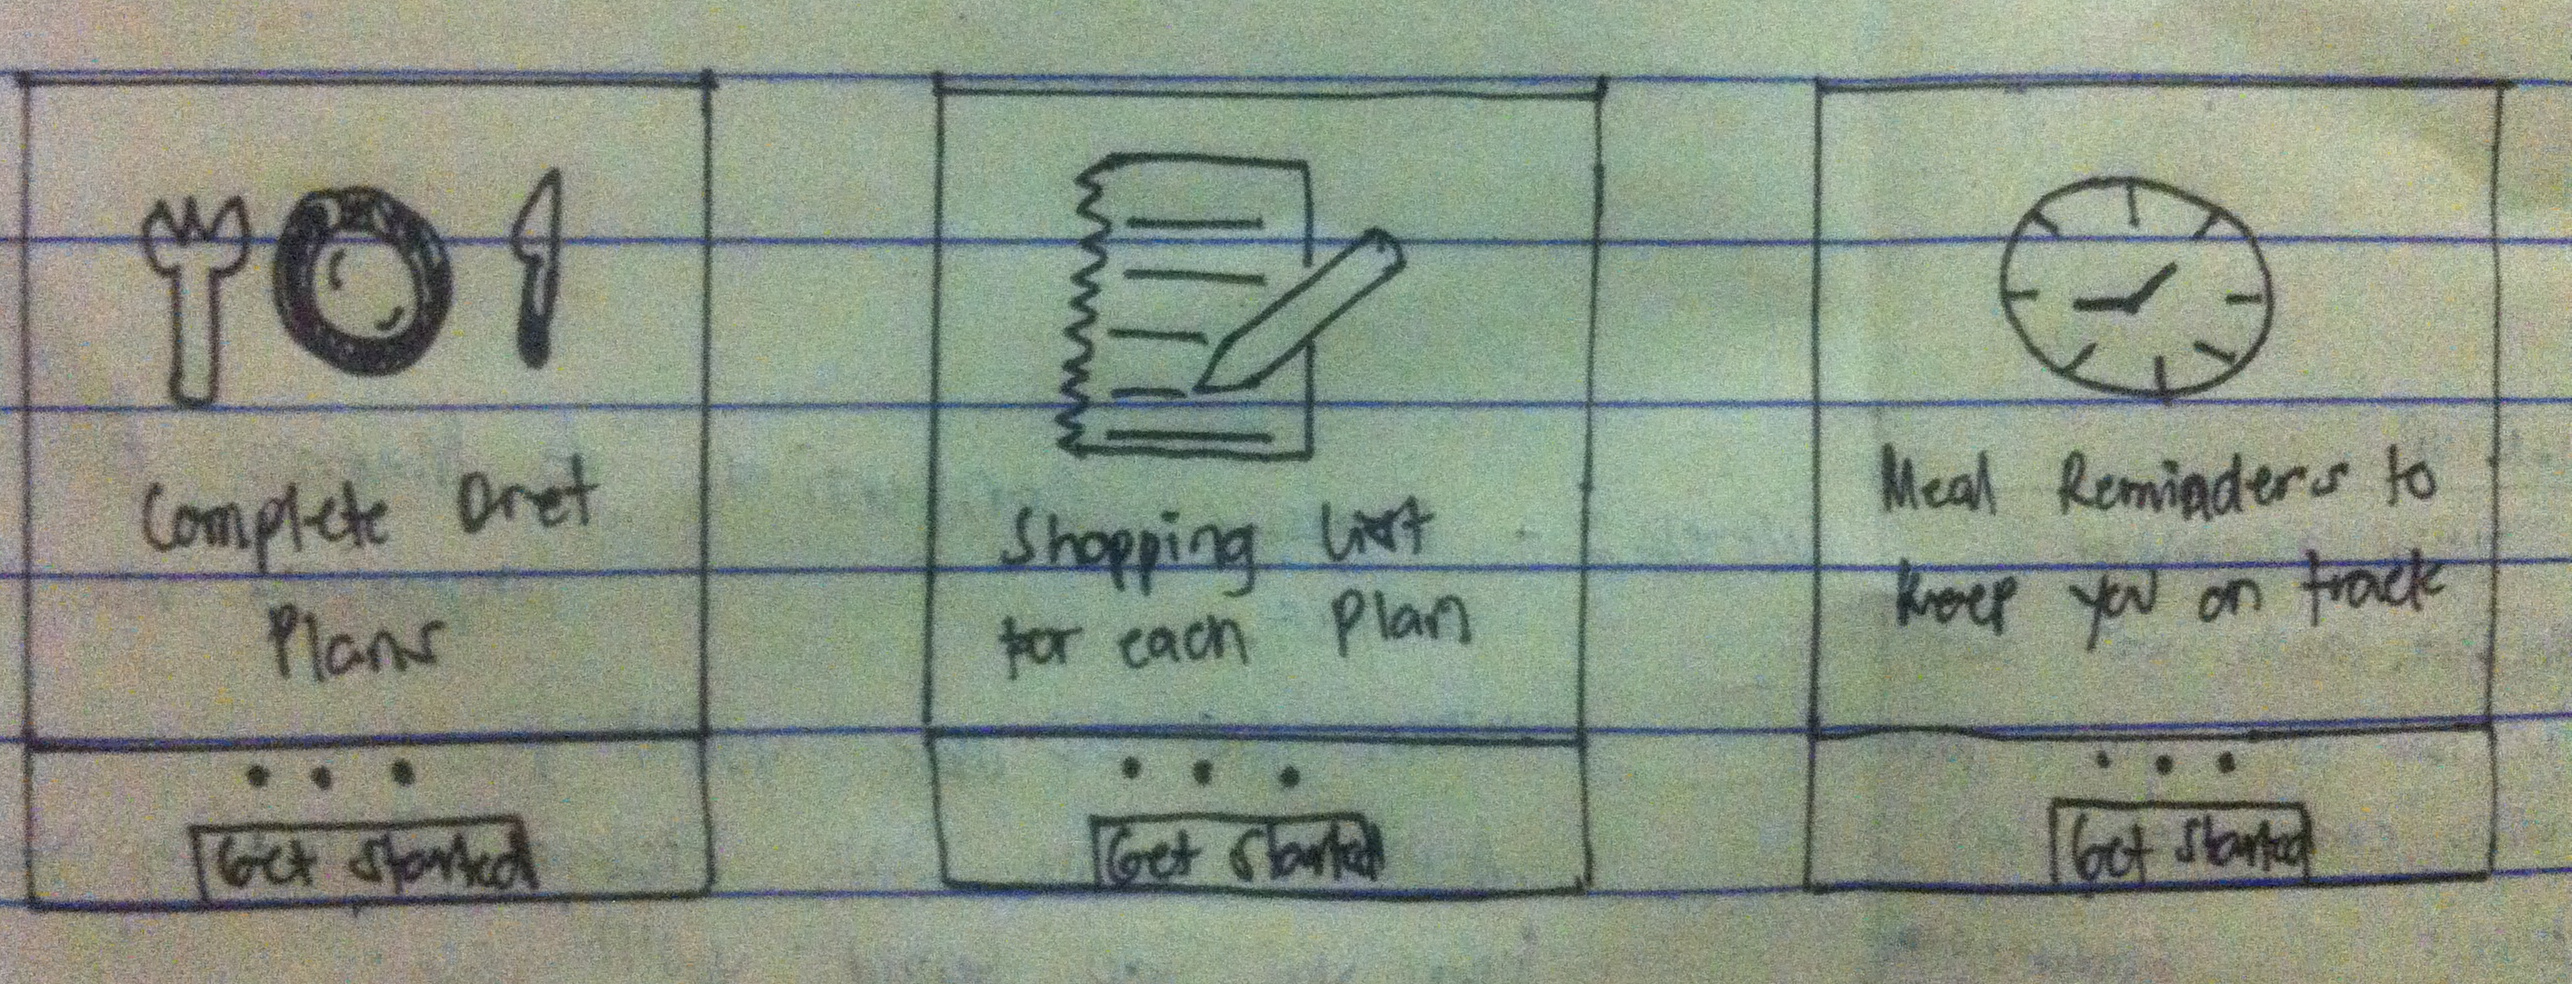 Complete Diet
Plans
Get Started
Shopping List
for each Plan
Get Started
Meal Reminders to
keep you on track
Get Started